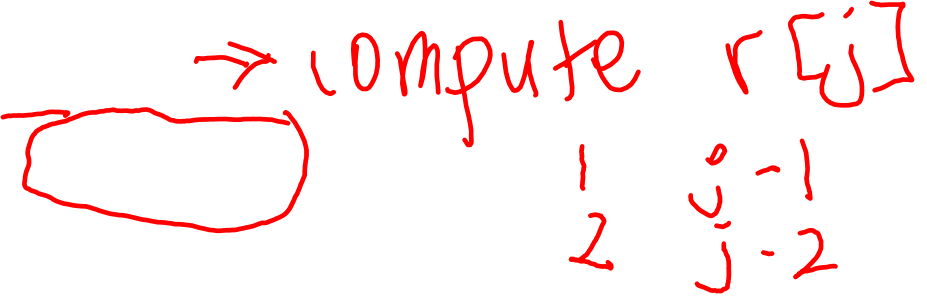 → compute r[j]
1 j-1
2 j-2